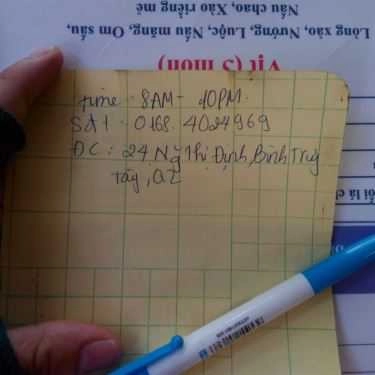 Lòng xào, Nướng, Luộc, Nấu măng, Om sấu,
Nấu chao, Xáo riêng mẻ
Vịt (5 món)
time 8AM - 10PM.
Sđt : 0168.4024969
ĐC : 24 Ng Thị Định, Bình Trưng
Tây, Q2